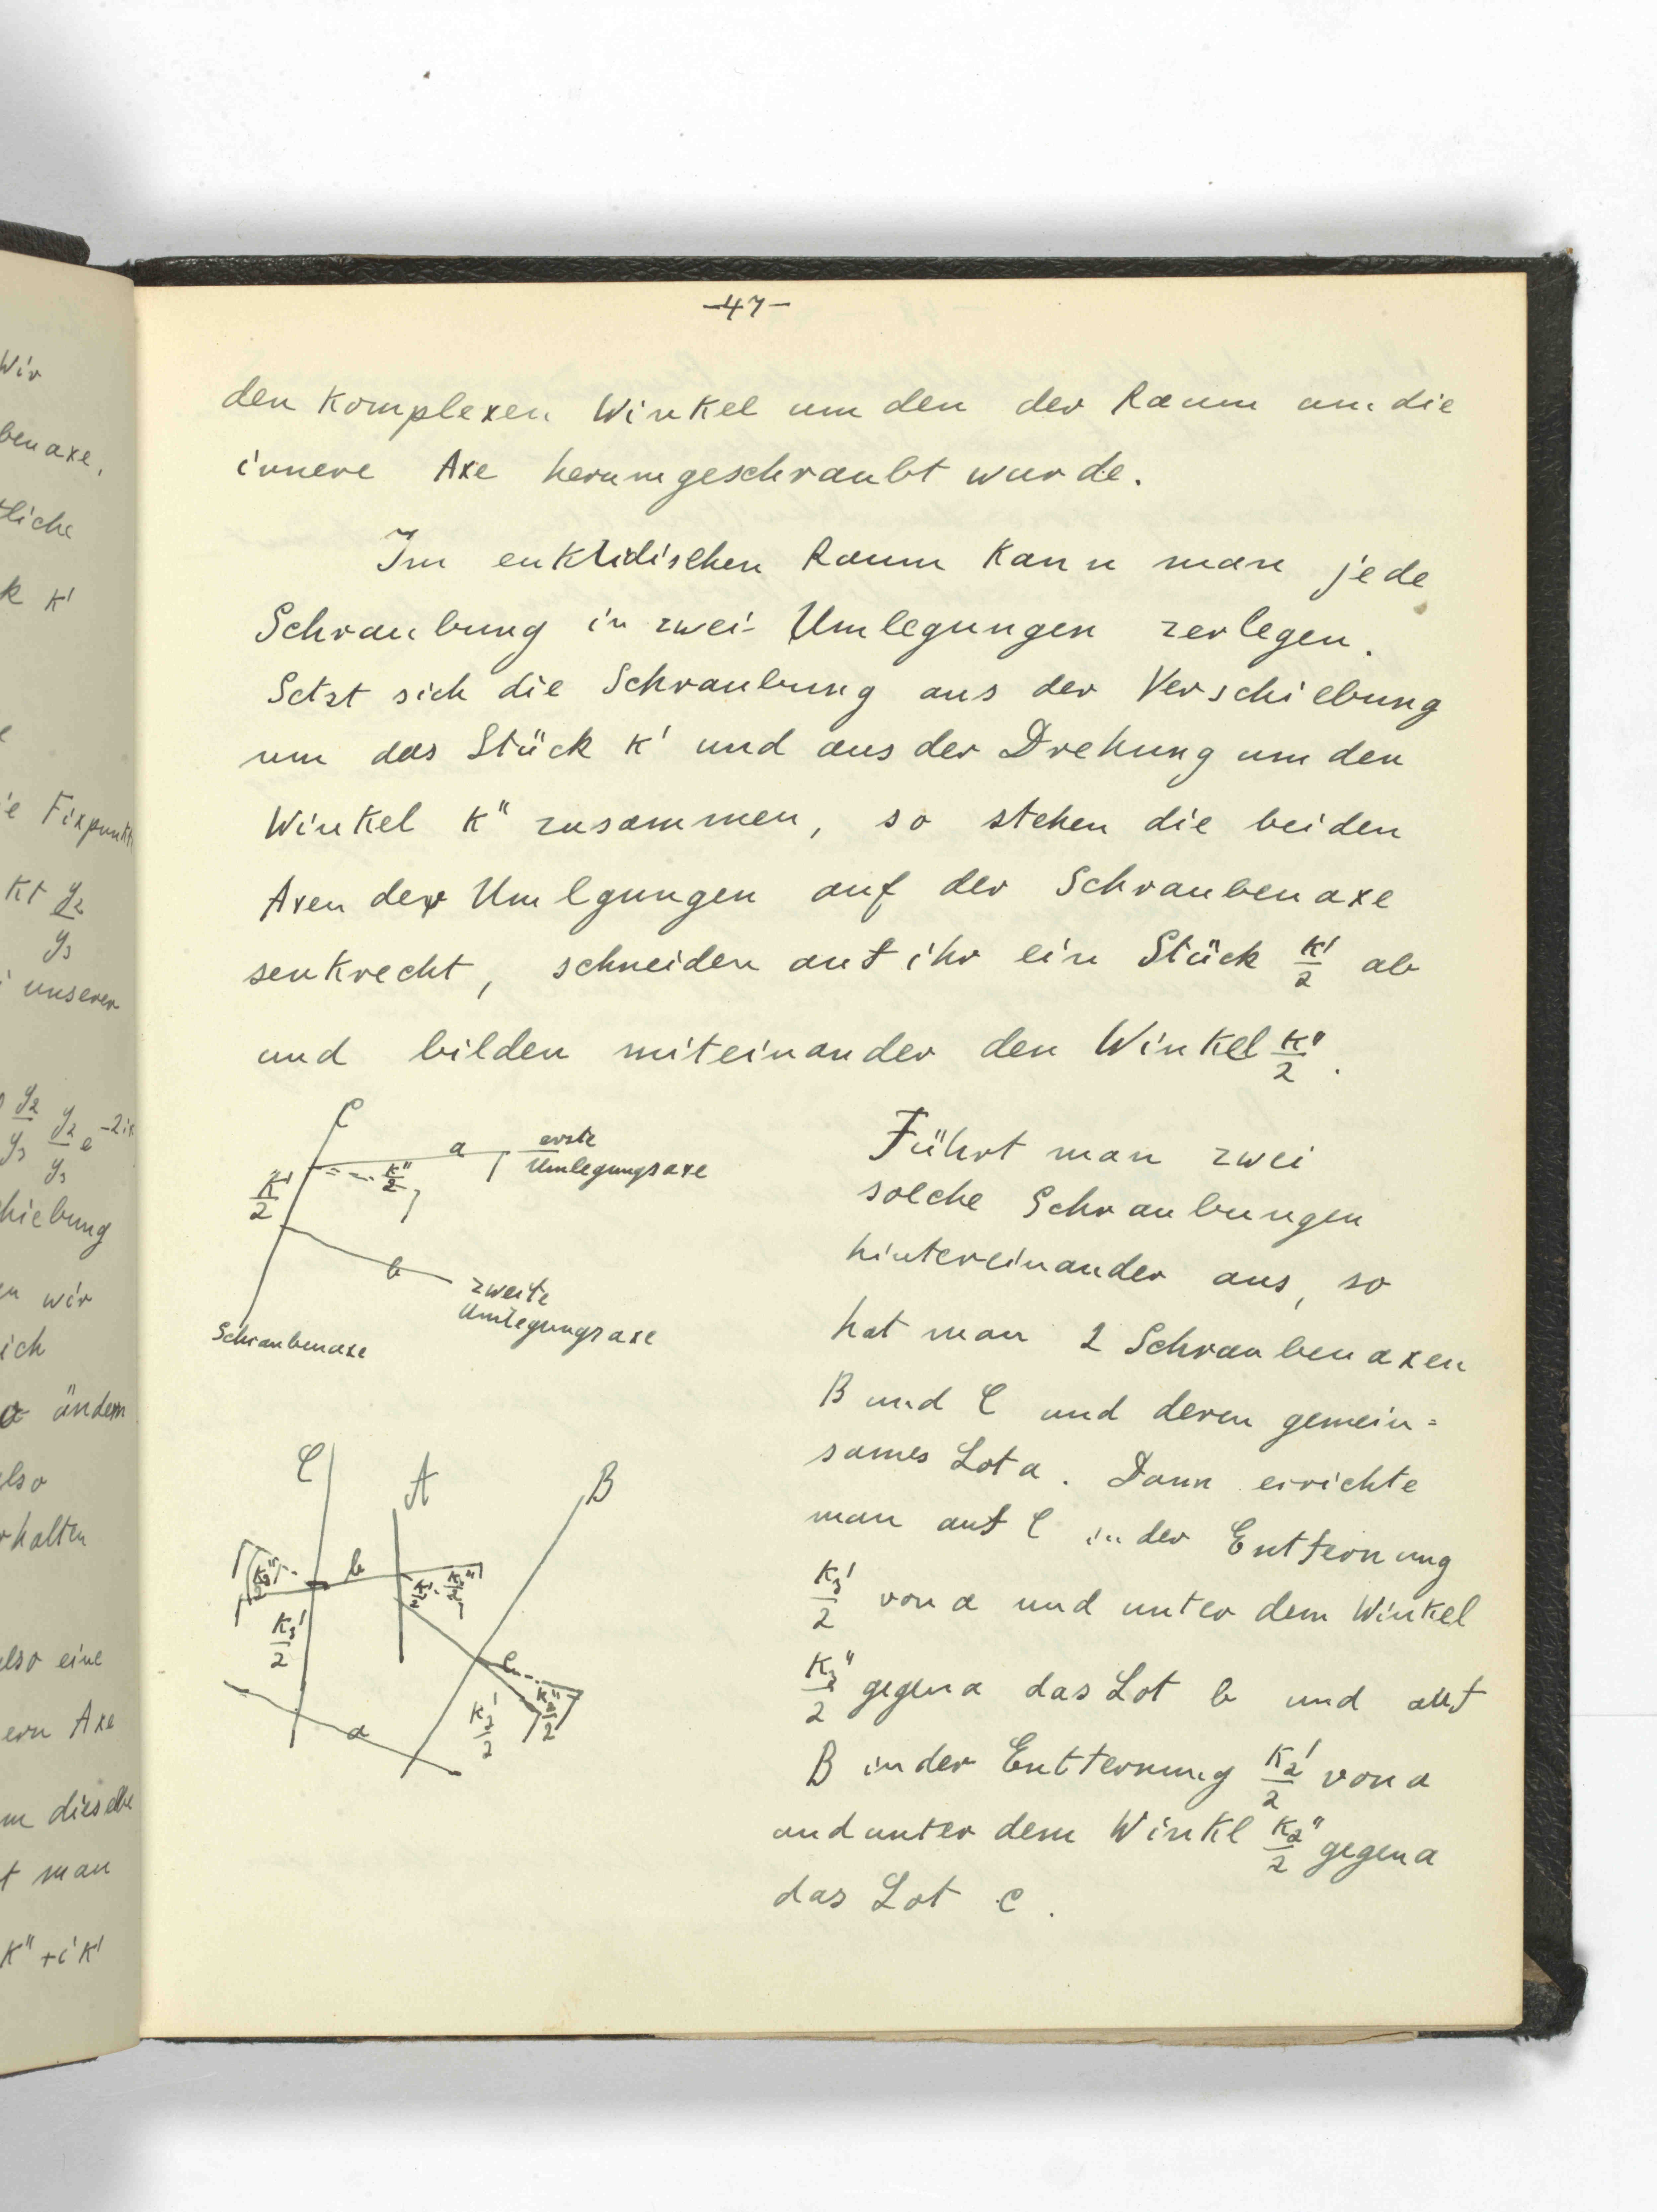 Wir
benaxe,
tliche
k K'
e
ie Fixpunkt
kt y₂
y₃
i unserer
y₂ y₂ e⁻²ⁱᵏ
y₃ y₃
hiebung
en wir
ich
a ändern
also
rhalten
also eine
ern Axe
m dieselbe
t man
K" + i K'
-47-
den Komplexen Winkel um den der Raum um die
innere Axe herumgeschraubt wurde.
Im euklidischen Raum kann man jede
Schraubung in zwei Umlegungen zerlegen.
Setzt sich die Schraubung aus der Verschiebung
um das Stück K' und aus der Drehung um den
Winkel K" zusammen, so stehen die beiden
Axen der Umlgungen auf der Schraubenaxe
senkrecht, schneiden auf ihr ein Stück K'/2 ab
und bilden miteinander den Winkel K"/2.
C
a
erste
Umlegungsaxe
K"/2
K'/2
b
zweite
Umlegungsaxe
Schraubenaxe
Führt man zwei
solche Schraubungen
hintereinander aus, so
hat man 2 Schraubenaxen
B und C und deren gemein=
sames Lot a. Dann errichte
man auf C in der Entfernung
K₃'/2 von a und unter dem Winkel
K₃"/2 gegen a das Lot b und auf
B in der Entfernung K₂'/2 von a
und unter dem Winkl K₂"/2 gegen a
das Lot c.
C
A
B
K₃"/2
b
K₃'/2
c
K₂'/2
K₂"/2
a